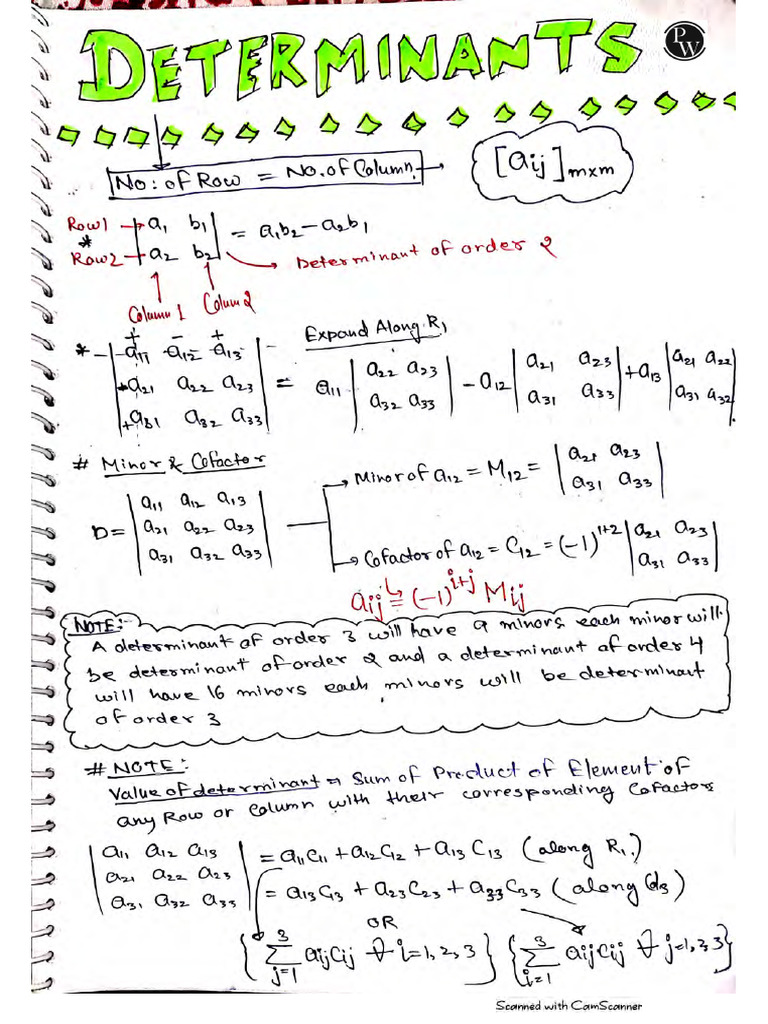 DETERMINANTS
PW
No: of Row = No. of Column. → [aij]mxm
Row1 → | a1 b1 | = a1b2 - a2b1
*
Row2 → | a2 b2 | → Determinant of order 2
Column 1 Column 2
Expand Along R1
+ - +
* - | a11 a12 a13 | = a11 | a22 a23 | - a12 | a21 a23 | + a13 | a21 a22 |
| a21 a22 a23 | | a32 a33 | | a31 a33 | | a31 a32 |
| a31 a32 a33 |
# Minor & Cofactor
→ Minor of a12 = M12 = | a21 a23 |
| a31 a33 |
D = | a11 a12 a13 |
| a21 a22 a23 |
| a31 a32 a33 |
→ Cofactor of a12 = C12 = (-1)^1+2 | a21 a23 |
| a31 a33 |
aij = (-1)^i+j Mij
NOTE:-
A determinant of order 3 will have 9 minors each minor will
be determinant of order 2 and a determinant of order 4
will have 16 minors each minors will be determinant
of order 3
# NOTE:
Value of determinant = Sum of Product of Element of
any Row or Column with their corresponding Cofactors
| a11 a12 a13 | = a11C11 + a12C12 + a13 C13 (along R1)
| a21 a22 a23 |
| a31 a32 a33 | = a13C13 + a23C23 + a33C33 (along C3)
OR
{ 3∑j=1 aijcij ∀ i=1, 2, 3 } { 3∑i=1 aijcij ∀ j=1, 2, 3 }
Scanned with CamScanner